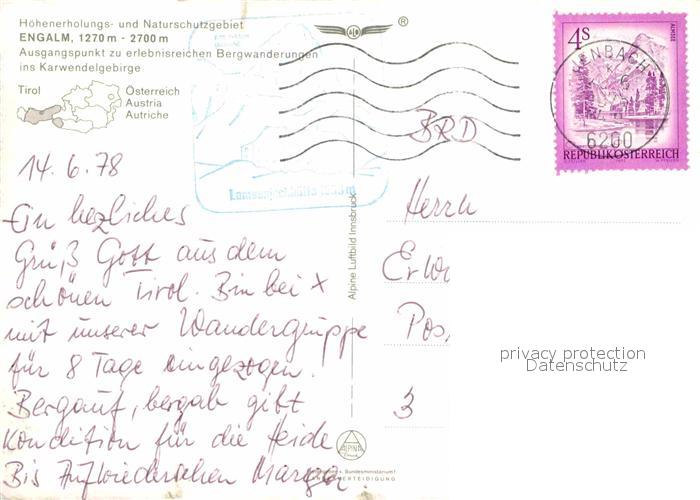 Höhenerholungs- und Naturschutzgebiet
ENGALM, 1270 m - 2700 m
Ausgangspunkt zu erlebnisreichen Bergwanderungen
ins Karwendelgebirge
Tirol
Österreich
Austria
Autriche
®
4S
ALMSEE
REPUBLIK ÖSTERREICH
JENBACH
6200
Lamsenjochhütte 1953 m
Alpine Luftbild Innsbruck
14.6.78
Ein hezliches
Grüß Gott aus dem
schönen Tirol. Bin bei x
mit unserer Wandergruppe
für 8 Tage eingezogen.
Bergauf, bergab gibt
Kondition für die Heide
Bis Aufwiedersehen
BRD
Herrn
Erw
Pos
3
privacy protection
Datenschutz
ALPINE
Bundesministerium f.